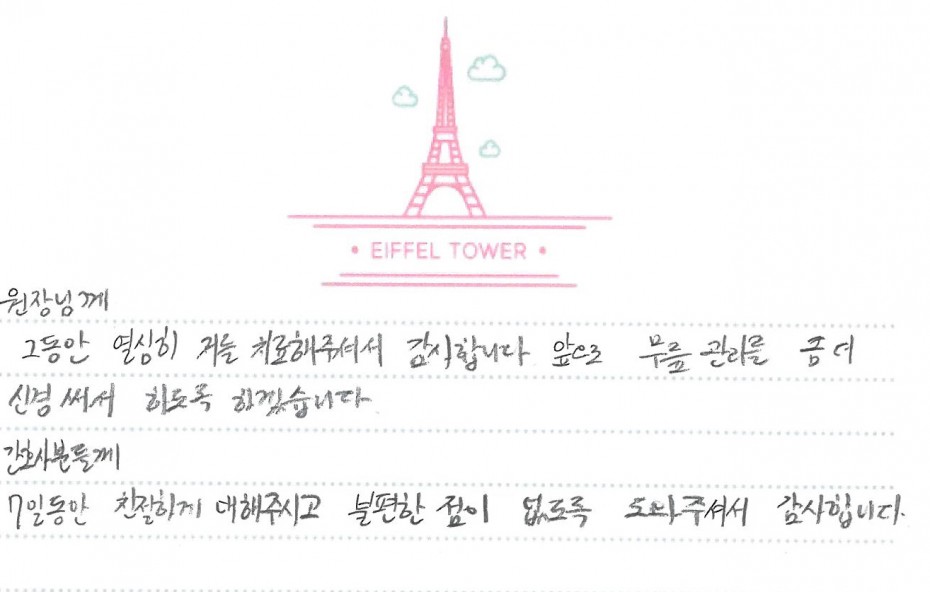 • EIFFEL TOWER •
원장님께
그동안 열심히 저를 치료해주셔서 감사합니다 앞으로 무릎 관리를 좀 더
신경 써서 하도록 하겠습니다
간호사분들께
7일동안 친절하게 대해주시고 불편한 점이 없도록 도와주셔서 감사합니다.